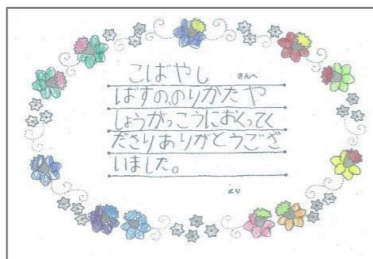 こばやし さんへ
ばすの、のりかたや
しょうがっこうにおくってく
ださりありがとうござ
いました。
より